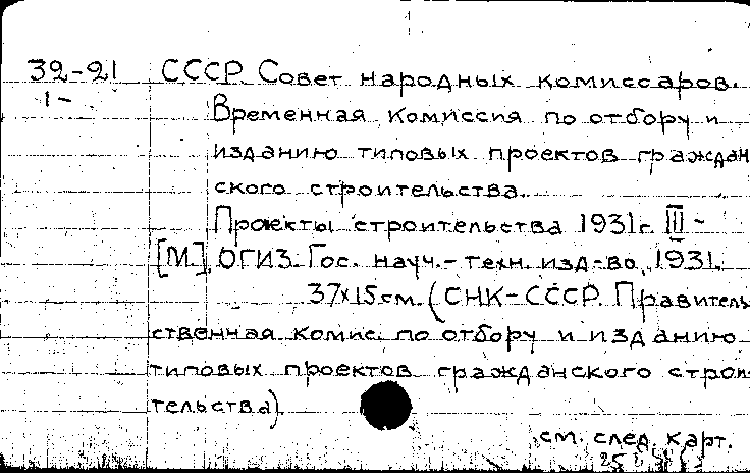 32-21 СССР. Совет народных комиссаров.
1-
Временная комиссия по отбору и
изданию типовых проектов граждан
ского строительства.
Проекты строительства 1931г. III -
[М.], ОГИЗ. Гос. науч.-техн. изд-во, 1931.
37х15см. (СНК-СССР. Правитель
ственная комис. по отбору и изданию
типовых проектов гражданского строи-
тельства).
см. след. карт.